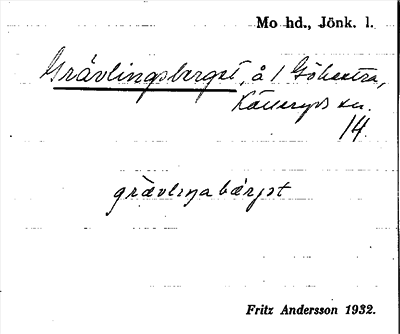 Mo hd., Jönk. l.
Grävlingsberget, å 1 Göhestra,
Kålleryds sn.
14.
grävlıŋabärjət
Fritz Andersson 1932.